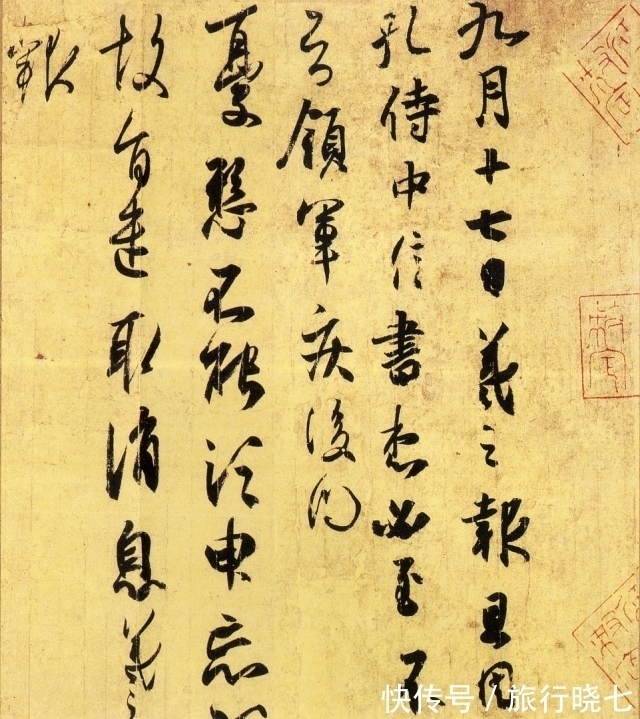 九月十七日羲之報且因
孔侍中信書想必至不
知領軍疾後問
憂懸不能須臾忘
故旨遣取消息羲之
報
快传号 / 旅行晓七